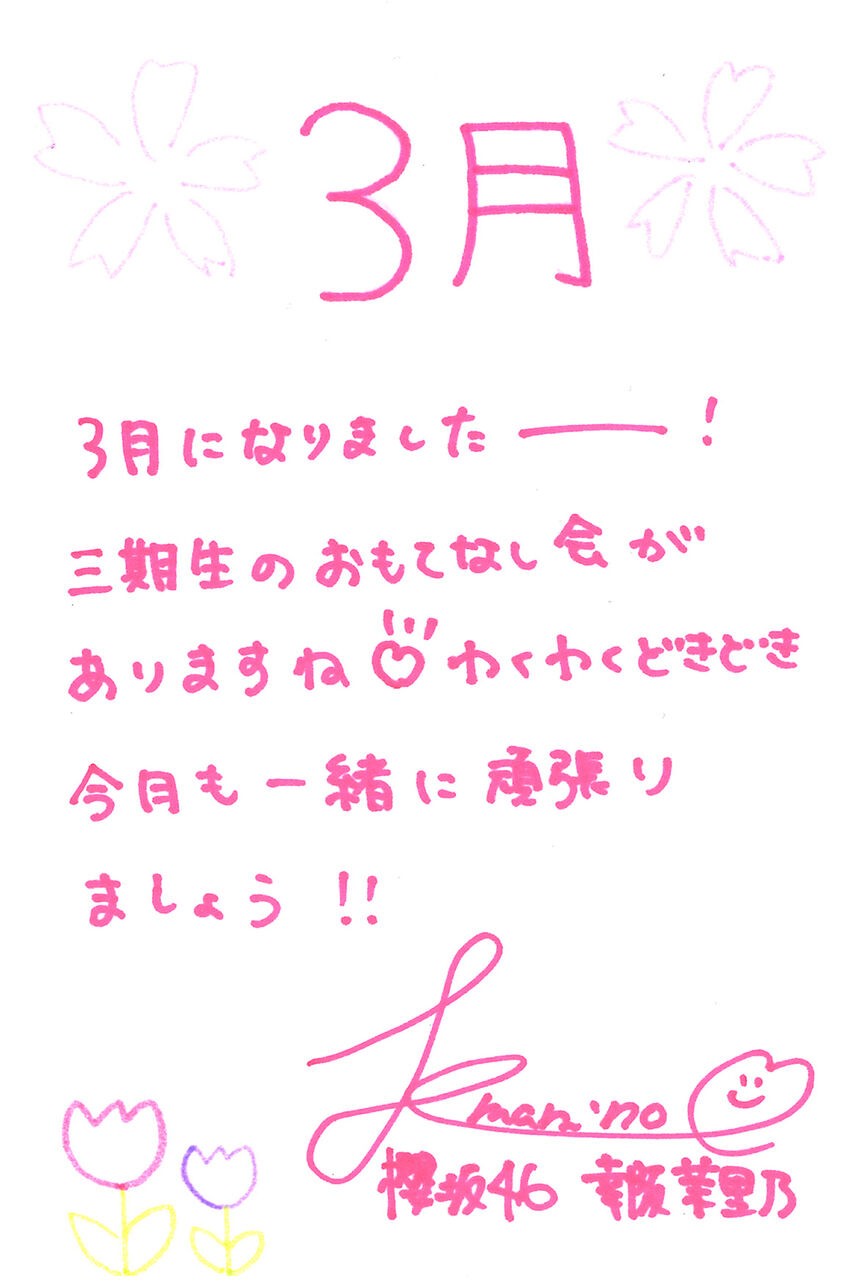 3月
3月になりましたー!
三期生のおもてなし会が
ありますね♡わくわくどきどき
今月も一緒に頑張り
ましょう!!
marino
櫻坂46 幸阪茉里乃